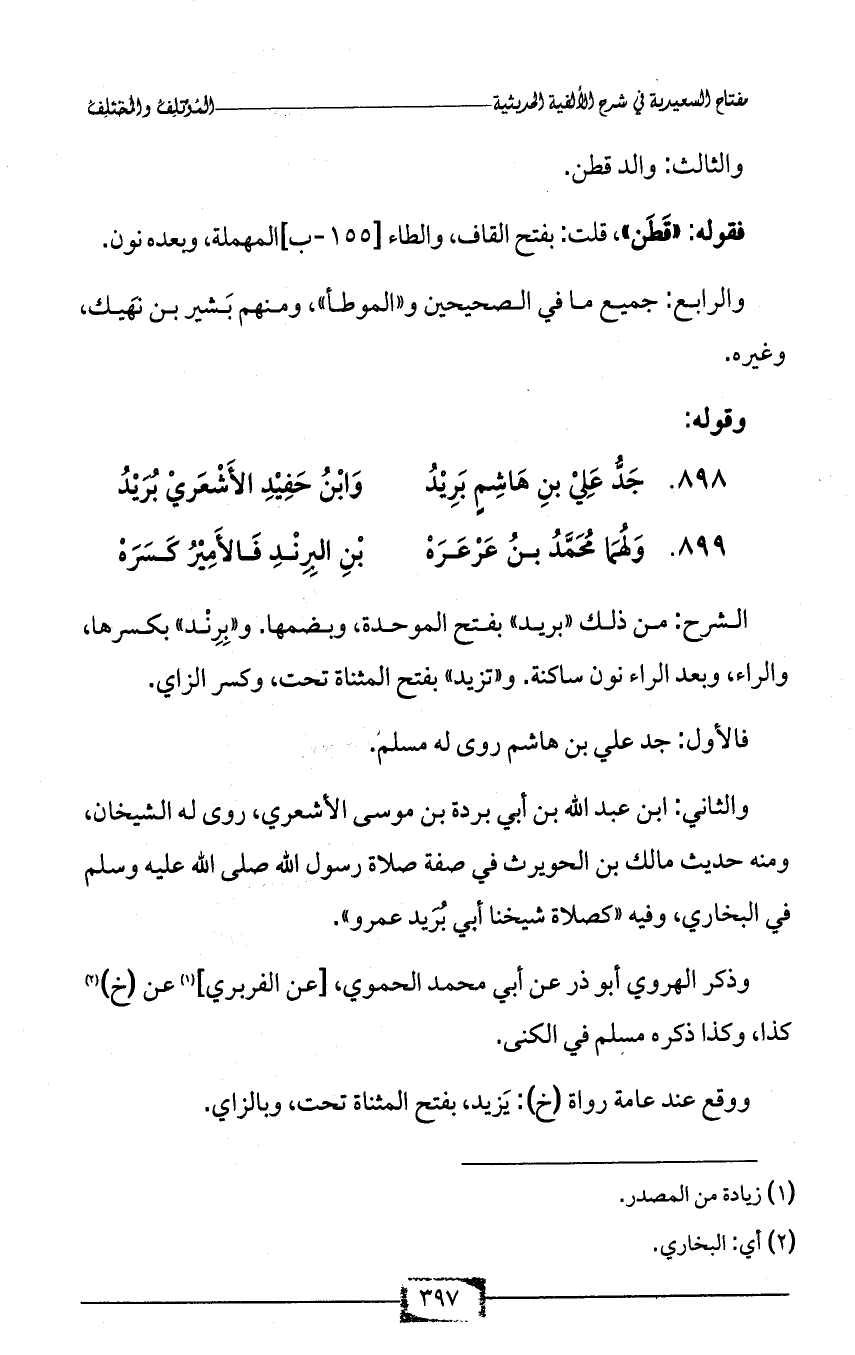 مفتاح السعيدية في شرح الألفية الحديثية ــــــــــــــــــــ المؤتلف والمختلف
والثالث: والد قطن.
فقوله: «قَطَن»، قلت: بفتح القاف، والطاء [١٥٥-ب]المهملة، وبعده نون.
والرابع: جميع ما في الصحيحين و«الموطأ»، ومنهم بَشير بن نهَيك،
وغيره.
وقوله:
٨٩٨. جَدُّ عَلِيْ بنِ هَاشِمٍ بَرِيْدُ وَابْنُ حَفِيْدِ الأَشْعَرِيْ بُرَيْدُ
٨٩٩. وَلَهُمَا مُحَمَّدُ بنُ عَرْعَرَهْ بْنِ البِرِنْدِ فَالأَمِيْرُ كَسَرَهْ
الشرح: من ذلك «بريد» بفتح الموحدة، وبضمها. و«بِرِنْد» بكسرها،
والراء، وبعد الراء نون ساكنة. و«تزيد» بفتح المثناة تحت، وكسر الزاي.
فالأول: جد علي بن هاشم روى له مسلم.
والثاني: ابن عبد الله بن أبي بردة بن موسى الأشعري، روى له الشيخان،
ومنه حديث مالك بن الحويرث في صفة صلاة رسول الله صلى الله عليه وسلم
في البخاري، وفيه «كصلاة شيخنا أبي بُرَيد عمرو».
وذكر الهروي أبو ذر عن أبي محمد الحموي، [عن الفربري](١) عن (خ)(٢)
كذا، وكذا ذكره مسلم في الكنى.
ووقع عند عامة رواة (خ): يَزيد، بفتح المثناة تحت، وبالزاي.
(١) زيادة من المصدر.
(٢) أي: البخاري.
٣٩٧